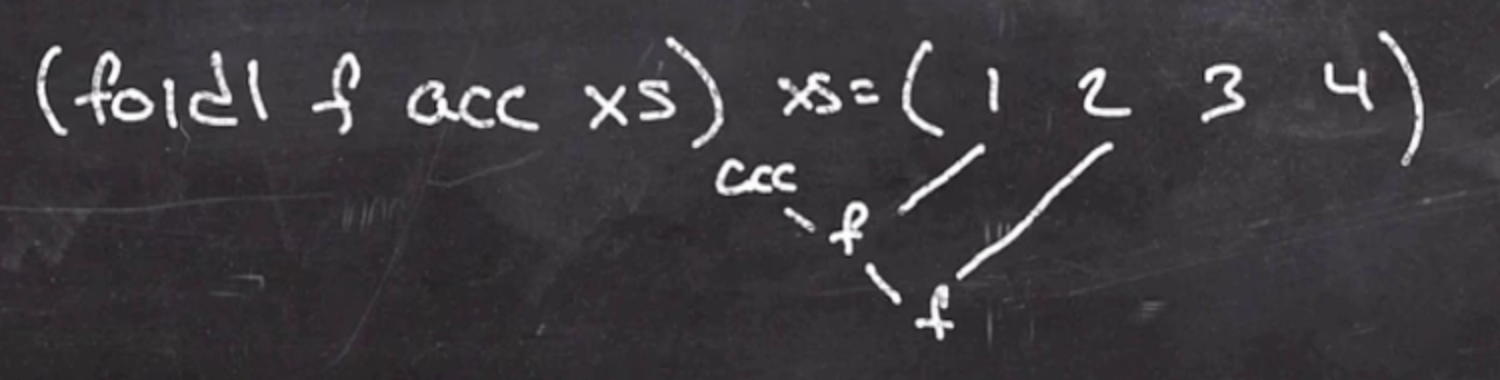 (foldl f acc xs) xs=( 1 2 3 4 )
acc
f
f